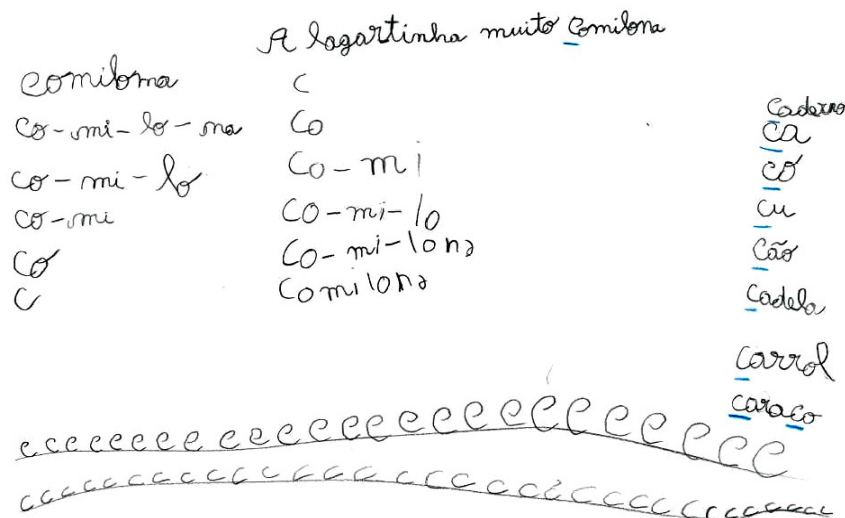 A lagartinha muito comilona
comilona
co-mi-lo-na
co-mi-lo
co-mi
co
c
c
co
co-mi
co-mi-lo
co-mi-lona
comilona
caderno
ca
co
cu
cão
cadela
carrol
caraco
e c e e e e e e e e e e e e e e e e e e e e e e e e e e e
c c c c c c c c c c c c c c c c c c c c c c c c c c c c c c c c c